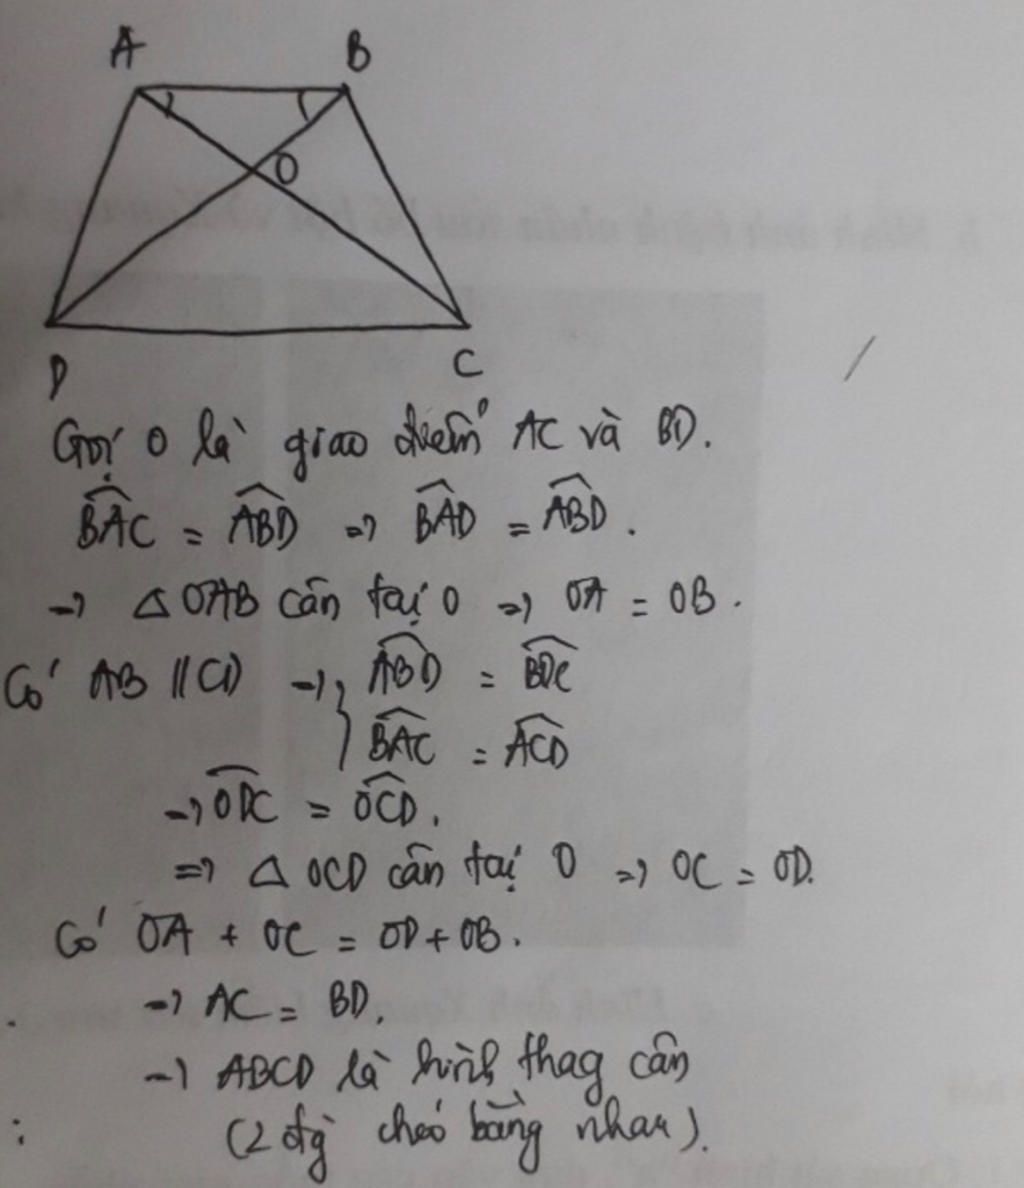 A B
O
D C
Gọi O là giao điểm AC và BD.
$\widehat{BAC}$ = $\widehat{ABD}$ => $\widehat{BAD}$ = $\widehat{ABD}$.
-> △ OAB cân tại O => OA = OB.
Có AB // CD -> } $\widehat{ABD}$ = $\widehat{BDC}$
$\widehat{BAC}$ = $\widehat{ACD}$
-> $\widehat{ODC}$ = $\widehat{OCD}$.
=> △ OCD cân tại O => OC = OD.
Có OA + OC = OD + OB.
-> AC = BD.
-> ABCD là hình thag cân
(2 đg chéo bằng nhau).